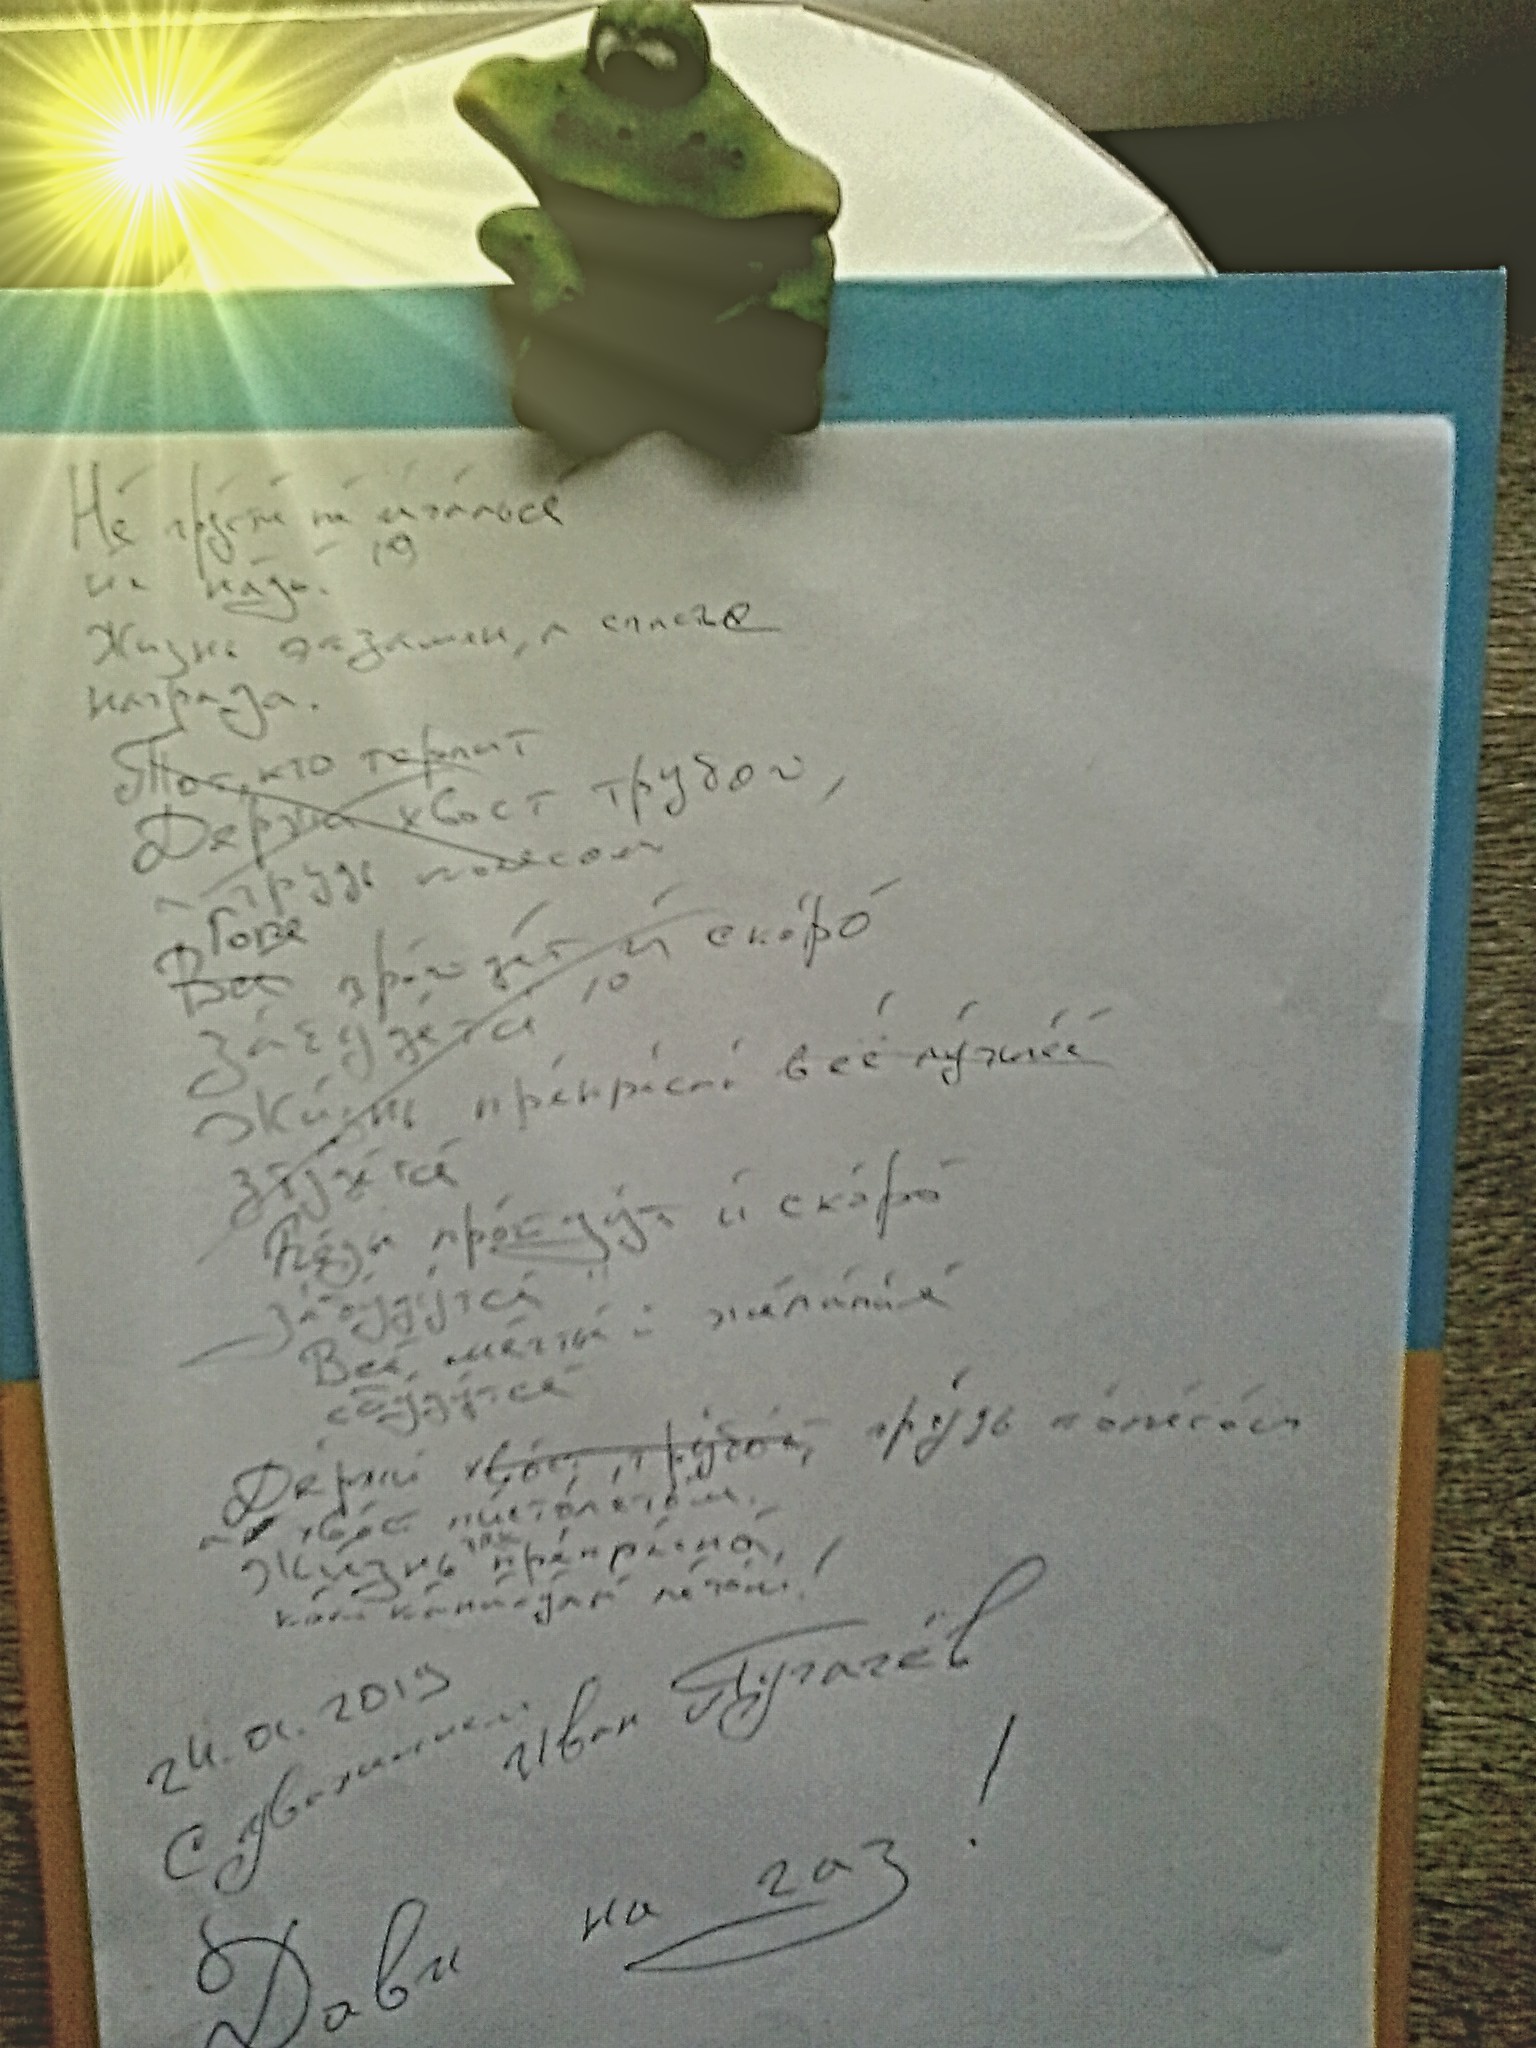 Не грусти и
не надо. 10
Жизнь экзамен, а счастье
награда.
Тот, кто терпит
Держи хвост трубой,
а грудь колесом
Горе
Все пройдёт и скоро
забудется 10
Жизнь прекрасна всё лучшее
сбудется
Беды пройдут и скоро
забудутся 11
Все мечты и желания
сбудутся
Держи хвост трубой, грудь колесом
а хвост пистолетом.
Жизнь так прекрасна,
летом!
24.01.2019
С уважением
Иван Пугачёв
Дави на газ!